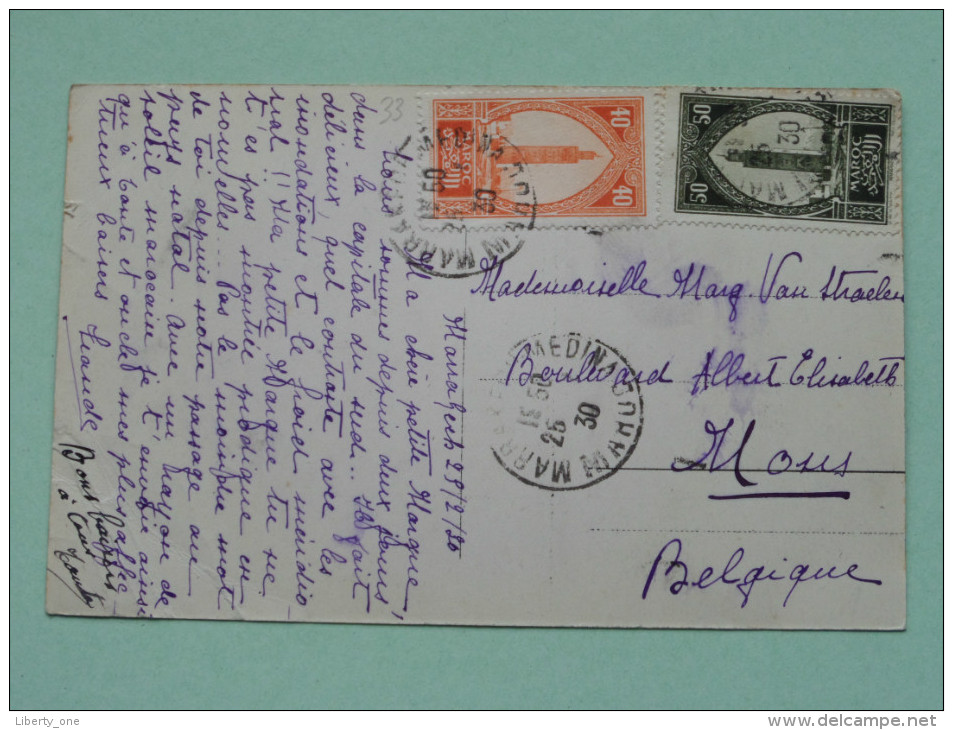 33
Marrakech 25/2/30
Ma chère petite Margue,
Nous sommes depuis deux jours
dans la capitale du sud... Il fait
délicieux, quel contraste avec les
inondations et le hoier méridio
nal !! Ma petite Margue tu ne
t'es pas montrée prodigue en
nouvelles... Pas le moindre mot
de toi depuis notre passage au
pays natal. Avec un rayon de
soleil marocain je t'envoie ainsi
qu'à tante et oncle mes plus affec-
tueux baisers
Bons baisers
à tous
MAROC
40
40
MAROC
50
50
MARRAKECH MEDINA
15 50
25
30
Mademoiselle Marg. Van Straelen
Boulevard Albert Elisabeth
Mons
Belgique
Liberty_one
www.delcampe.net